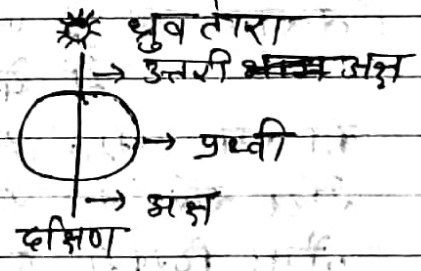 ध्रुव तारा
→ उत्तरी अक्ष
→ पृथ्वी
→ अक्ष
दक्षिण